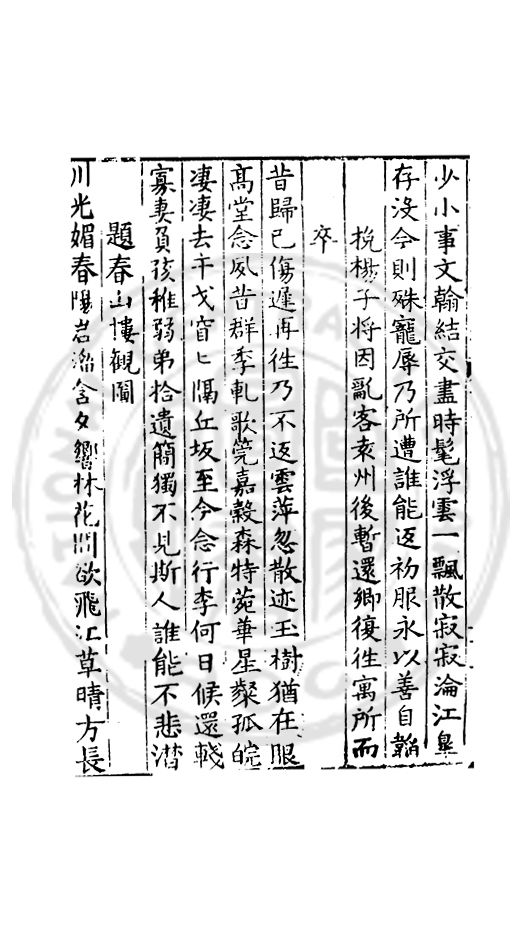 少小事文翰結交盡時髦浮雲一飄散寂寂淪江皐
存没今則殊寵辱乃所遭誰能返初服永以善自韜
挽楊子将因亂客袁州後暫還鄉復往寓所而
卒
昔歸已傷遲再徃乃不返雲萍忽散迹玉樹猶在眼
髙堂念夙昔群季軋歌筦嘉穀森特苑華星粲孤皖
凄凄去干戈窅匕隔丘坂至今念行李何日候還輚
寡妻負孩稚弱弟拾遺簡獨不見斯人誰能不悲潸
題春山樓觀圖
川光媚春陽岩溜含夕響林花閒欲飛江草晴方長